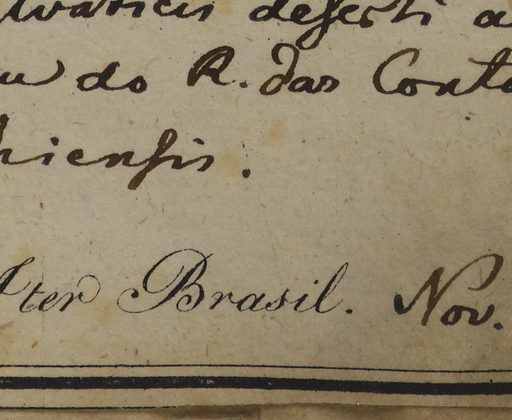 lvaticis deserti a
u do R. das Conta
hiensis.
Iter Brasil. Nov.